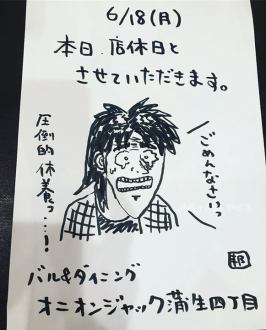 6/18(月)
本日.店休日と
させていただきます。
ごめんなさいっ
圧倒的休養っ…!
バル&ダイニング
オニオンジャック蒲生四丁目